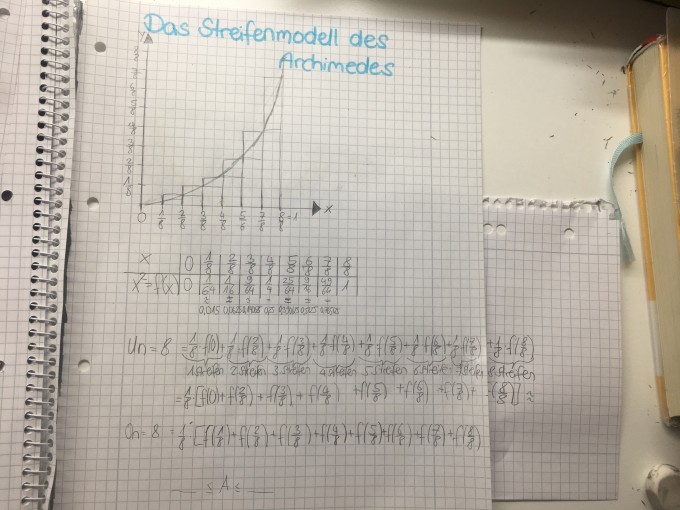 Das Streifenmodell des
Archimedes
y
x
0 1/8 2/8 3/8 4/8 5/6 7/8 8/8=1
x 0 1/8 2/8 3/8 4/8 5/8 6/8 7/8 8/8
x²=f(x) 0 1/64 1/16 9/64 1/4 25/64 9/16 49/64 1
0,015
Un=8 = 1/8·f(0)+1/8·f(2/8)+1/8·f(3/8)+1/8·f(4/8)+1/8·f(5/8)+1/8·f(6/8)+1/8·f(7/8)+1/8·f(8/8)
1.Streifen 2.Streifen 3.Streifen 4.Streifen 5.Streifen 6.Streifen 7.Streifen 8.Streifen
=1/8·[f(0)+f(2/8)+f(3/8)+f(4/8)+f(5/8)+f(6/8)+f(7/8)+f(8/8)] =
On=8 = 1/8·[f(1/8)+f(2/8)+f(3/8)+f(4/8)+f(5/8)+f(6/8)+f(7/8)+f(8/8)]
___ ≤ A ≤ ___